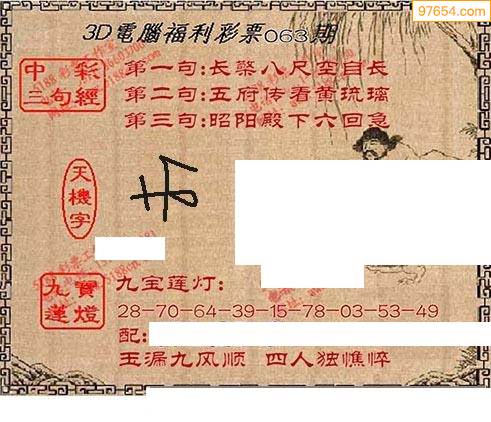 97654.com
3D電腦福利彩票063期
中彩三句經
第一句:长檠八尺空自长
第二句:五府传看黄琉璃
第三句:昭阳殿下六回急
天機字
九寶蓮燈
九宝莲灯:
28-70-64-39-15-78-03-53-49
配:
玉漏九风顺 四人独憔悴